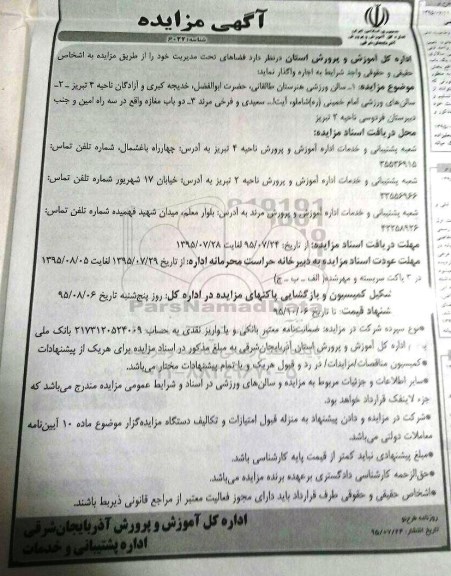 آگهی مزایده
اداره کل آموزش و پرورش استان درنظر دارد فضاهای تحت مدیریت خود را از طریق مزایده به اشخاص
حقیقی و حقوقی واجد شرایط به اجاره واگذار نماید:
موضوع مزایده: ۱ـ سالن ورزشی هنرستان طالقانی، حضرت ابوالفضل، خدیجه کبری و آزادگان ناحیه ۳ تبریز ـ ۲ـ
سالن‌های ورزشی امام خمینی (ره) شاملو، آیت‌ا... سعیدی و فرخی مرند ۳ـ دو باب مغازه واقع در سه راه امین و جنب
دبیرستان فردوسی ناحیه ۳ تبریز
محل دریافت اسناد مزایده:
شعبه پشتیبانی و خدمات اداره آموزش و پرورش ناحیه ۴ تبریز به آدرس: چهارراه باغشمال، شماره تلفن تماس:
۳۵۵۳۶۹۱۵
شعبه پشتیبانی و خدمات اداره آموزش و پرورش ناحیه ۲ تبریز به آدرس: خیابان ۱۷ شهریور شماره تلفن تماس:
۳۳۵۵۶۹۶۶
شعبه پشتیبانی و خدمات اداره آموزش و پرورش مرند به آدرس: بلوار معلم، میدان شهید فهمیده شماره تلفن تماس:
۴۲۲۵۸۹۲۶
مهلت دریافت اسناد مزایده: از تاریخ: ۹۵/۰۷/۲۴ لغایت ۱۳۹۵/۰۷/۲۸
مهلت عودت اسناد مزایده به دبیرخانه حراست محرمانه اداره: از تاریخ ۱۳۹۵/۰۷/۲۹ لغایت ۱۳۹۵/۰۸/۰۵
در ۳ پاکت سربسته و مهرشده( الف ـ ب ـ ج)
تشکیل کمیسیون و بازگشایی پاکتهای مزایده در اداره کل: روز پنج‌شنبه تاریخ ۹۵/۰۸/۰۶
پیشنهاد قیمت: تا تاریخ ۹۵/۱۰/۰۶
*نوع سپرده شرکت در مزایده: ضمانت‌نامه معتبر بانکی و یا واریز نقدی به حساب ۲۱۷۳۱۲۰۵۲۳۰۶۹ بانک ملی
اداره کل آموزش و پرورش استان آذربایجان‌شرقی به مبلغ مذکور در اسناد مزایده برای هریک از پیشنهادات
*کمیسیون مناقصات/مزایدات/ در رد و قبول هریک و یا تمام پیشنهادات مختار می‌باشد.
*سایر اطلاعات و جزئیات مربوط به مزایده و سالن‌های ورزشی در اسناد و شرایط عمومی مزایده مندرج می‌باشد که
جزء لاینفک قرارداد خواهد بود.
*شرکت در مزایده و دادن پیشنهاد به منزله قبول امتیازات و تکالیف دستگاه مزایده‌گزار موضوع ماده ۱۰ آیین‌نامه
معاملات دولتی می‌باشد.
*مبلغ پیشنهادی نباید کمتر از قیمت پایه کارشناسی باشد.
*حق‌الزحمه کارشناسی دادگستری برعهده برنده مزایده می‌باشد.
*اشخاص حقیقی و حقوقی طرف قرارداد باید دارای مجوز فعالیت معتبر از مراجع قانونی ذیربط باشند.
اداره کل آموزش و پرورش آذربایجان‌شرقی
اداره پشتیبانی و خدمات
روزنامه طرح‌نو
تاریخ انتشار: ۹۵/۰۷/۲۴
ParsNamadData